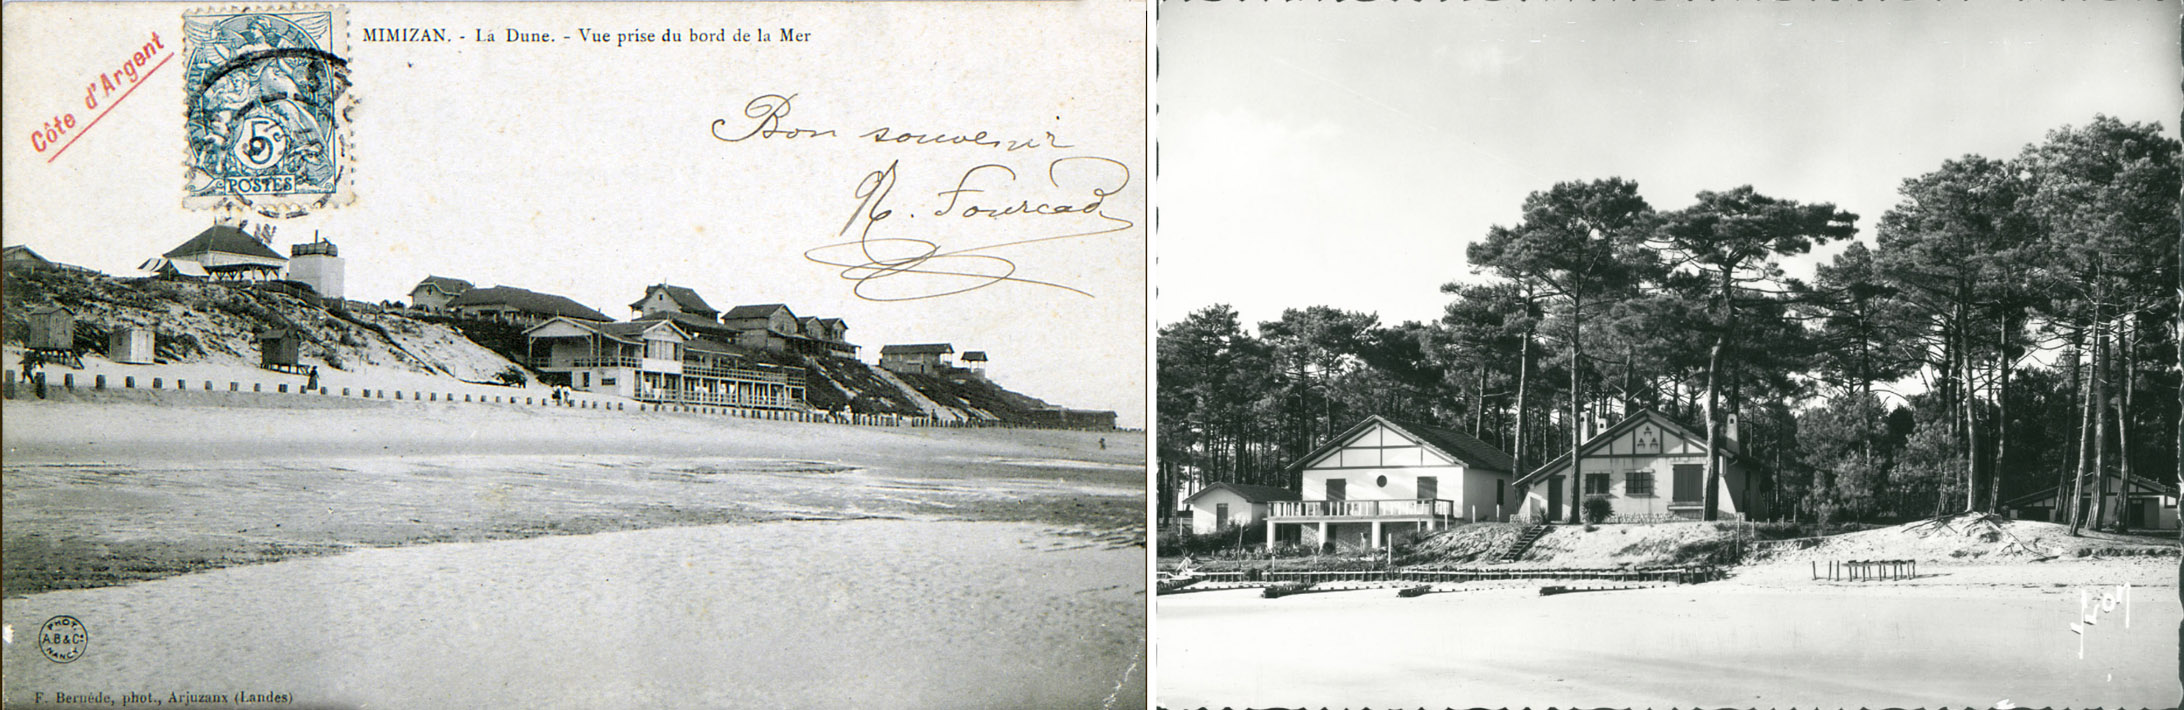 Côte d'Argent
5
POSTES
MIMIZAN. - La Dune. - Vue prise du bord de la Mer
Bon souvenir
N. Fourcad
PHOT.
A.B & Cie
NANCY
F. Bernède, phot., Arjuzanx (Landes)
Yvon